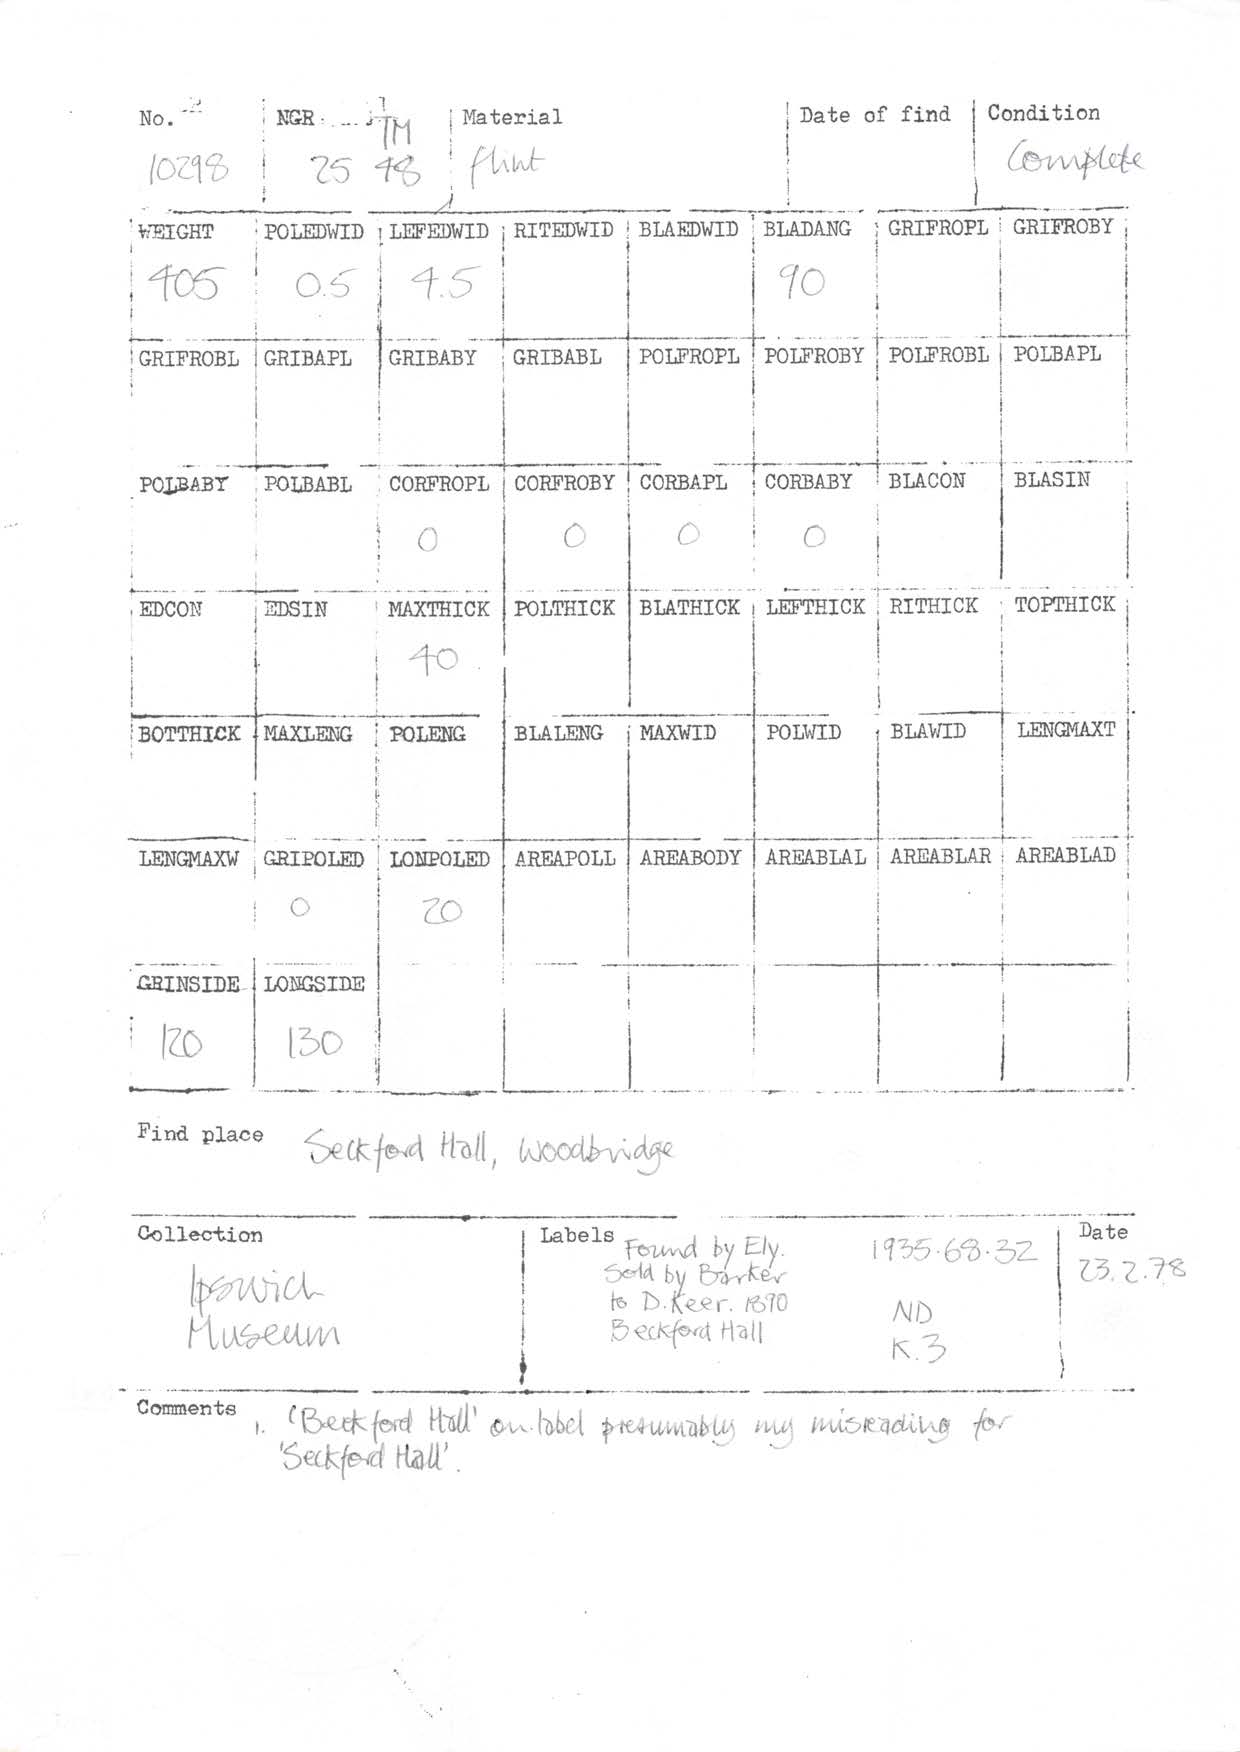 No. NGR TM Material Date of find Condition
10298 25 48 flint Complete
WEIGHT POLEDWID LEFEDWID RITEDWID BLAEDWID BLADANG GRIFROPL GRIFROBY
405 0.5 4.5 90
GRIFROBL GRIBAPL GRIBABY GRIBABL POLFROPL POLFROBY POLFROBL POLBAPL
POLBABY POLBABL CORFROPL CORFROBY CORBAPL CORBABY BLACON BLASIN
0 0 0 0
EDCON EDSIN MAXTHICK POLTHICK BLATHICK LEFTHICK RITHICK TOPTHICK
40
BOTTHICK MAXLENG POLENG BLALENG MAXWID POLWID BLAWID LENGMAXT
LENGMAXW GRIPOLED LONPOLED AREAPOLL AREABODY AREABLAL AREABLAR AREABLAD
0 20
GRINSIDE LONGSIDE
120 130
Find place Seckford Hall, Woodbridge
Collection Labels Date
Ipswich
Museum
Found by Ely.
Sold by Barker
to D. Keer. 1890
Beckford Hall
1935.68.32
ND
K.3
23.2.78
Comments 1. 'Beckford Hall' on label presumably my misreading for
'Seckford Hall'.